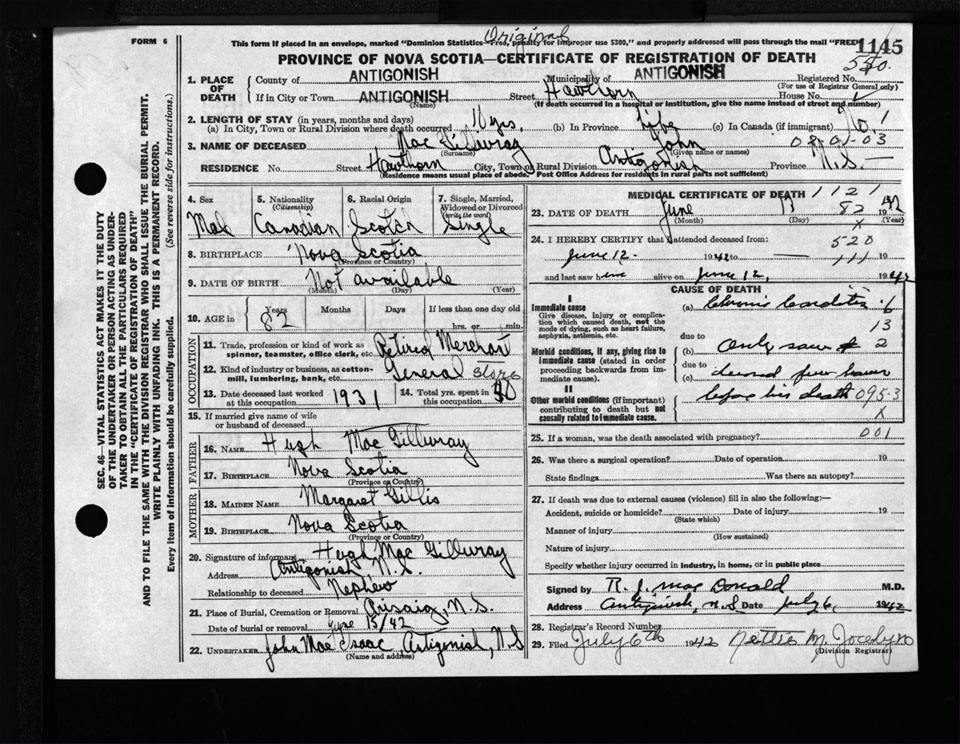 Original
FORM 6
This form if placed in an envelope, marked "Dominion Statistics—Free, penalty for improper use $300," and properly addressed will pass through the mail "FREE"
1145
PROVINCE OF NOVA SCOTIA—CERTIFICATE OF REGISTRATION OF DEATH
1. PLACE OF DEATH
County of ANTIGONISH Municipality of ANTIGONISH Registered No.
(For use of Registrar General only)
If in City or Town ANTIGONISH Street Hawthorn House No.
(Name) (If death occurred in a hospital or institution, give the name instead of street and number)
2. LENGTH OF STAY (in years, months and days)
(a) In City, Town or Rural Division where death occurred 11 yrs. (b) In Province Life (c) In Canada (if immigrant)
3. NAME OF DECEASED Mac Gillivray John
(Surname) (Given name or names)
RESIDENCE No. Street Hawthorn City, Town or Rural Division Antigonish Province N.S.
(Residence means usual place of abode. Post Office Address for residents in rural parts not sufficient)
4. Sex 5. Nationality (Citizenship) 6. Racial Origin 7. Single, Married, Widowed or Divorced (write the word)
Male Canadian Scotch Single
8. BIRTHPLACE Nova Scotia
(Province or Country)
9. DATE OF BIRTH Not available
(Month) (Day) (Year)
10. AGE in Years Months Days If less than one day old
82 hrs. or min.
OCCUPATION
11. Trade, profession or kind of work as spinner, teamster, office clerk, etc. Retired Merchant
12. Kind of industry or business, as cotton-mill, lumbering, bank, etc. General Store
13. Date deceased last worked at this occupation 1931 14. Total yrs. spent in this occupation
15. If married give name of wife or husband of deceased
FATHER
16. NAME Hugh Mac Gillivray
17. BIRTHPLACE Nova Scotia
(Province or Country)
MOTHER
18. MAIDEN NAME Margaret Gillis
19. BIRTHPLACE Nova Scotia
(Province or Country)
20. Signature of informant Hugh Mac Gillivray
Address Antigonish N.S.
Relationship to deceased Nephew
21. Place of Burial, Cremation or Removal Arisaig, N.S.
Date of burial or removal June 15/42
22. UNDERTAKER John Mac Isaac, Antigonish, N.S
(Name and address)
MEDICAL CERTIFICATE OF DEATH 1121
23. DATE OF DEATH June 13 1942
(Month) (Day) (Year)
24. I HEREBY CERTIFY that I attended deceased from:
June 12 1942 to 19
and last saw him alive on June 12, 1942
CAUSE OF DEATH
I
Immediate cause
Give disease, injury or complication which caused death, not the mode of dying, such as heart failure, asphyxia, asthenia, etc.
(a) Chronic Carditis
due to
Morbid conditions, if any, giving rise to immediate cause (stated in order proceeding backwards from immediate cause).
(b) Only saw
due to
(c) deceased few hours
II
Other morbid conditions (if important) contributing to death but not causally related to immediate cause.
before his death 095-3
25. If a woman, was the death associated with pregnancy? 001
26. Was there a surgical operation? Date of operation 19
State findings Was there an autopsy?
27. If death was due to external causes (violence) fill in also the following:—
Accident, suicide or homicide? Date of injury 19
(State which)
Manner of injury
(How sustained)
Nature of injury
Specify whether injury occurred in industry, in home, or in public place
Signed by R. J. Mac Donald M.D.
Address Antigonish, N.S Date July 6, 1942
28. Registrar's Record Number
29. Filed July 6th 1942 Nettie M. Jocelyn
(Division Registrar)
SEC. 46—VITAL STATISTICS ACT MAKES IT THE DUTY
OF THE UNDERTAKER OR PERSON ACTING AS UNDERTAKER TO OBTAIN ALL THE PARTICULARS REQUIRED
IN THE "CERTIFICATE OF REGISTRATION OF DEATH"
AND TO FILE THE SAME WITH THE DIVISION REGISTRAR WHO SHALL ISSUE THE BURIAL PERMIT.
WRITE PLAINLY WITH UNFADING INK. THIS IS A PERMANENT RECORD.
Every item of information should be carefully supplied. (See reverse side for instructions.)